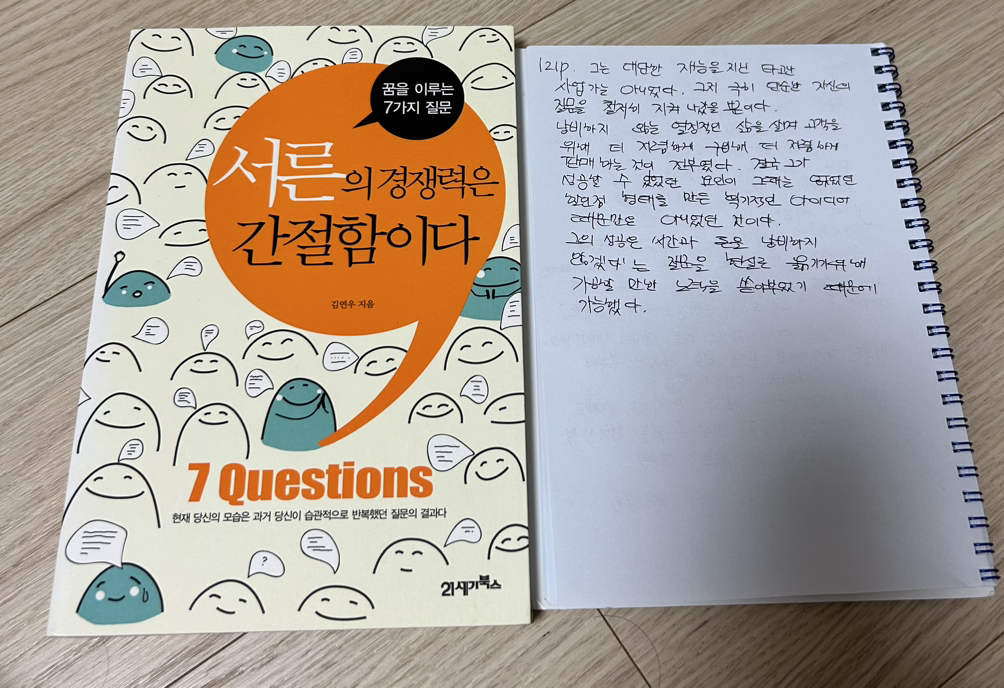 꿈을 이루는
7가지 질문
서른의 경쟁력은
간절함이다
김연우 지음
7 Questions
현재 당신의 모습은 과거 당신이 습관적으로 반복했던 질문의 결과다
?
21세기북스
121p. 그는 대단한 재능을 지닌 타고난
사업가는 아니었다. 그저 극히 단순한 자신의
질문을 철저히 지켜 나갔을 뿐이다.
낭비하지 않는 열정적인 삶을 살며 고객을
위해 더 저렴하게 구매해 더 저렴하게
판매하는 것이 전부였다. 결국 그가
성공할 수 있었던 요인이 그때는 없었던
할인점 형태를 만든 획기적인 아이디어
때문만은 아니었던 것이다.
그의 성공은 '시간과 돈을 낭비하지
않겠다'는 질문을 현실로 옮기기 위해
가능할 만한 노력을 쏟아부었기 때문에
가능했다.